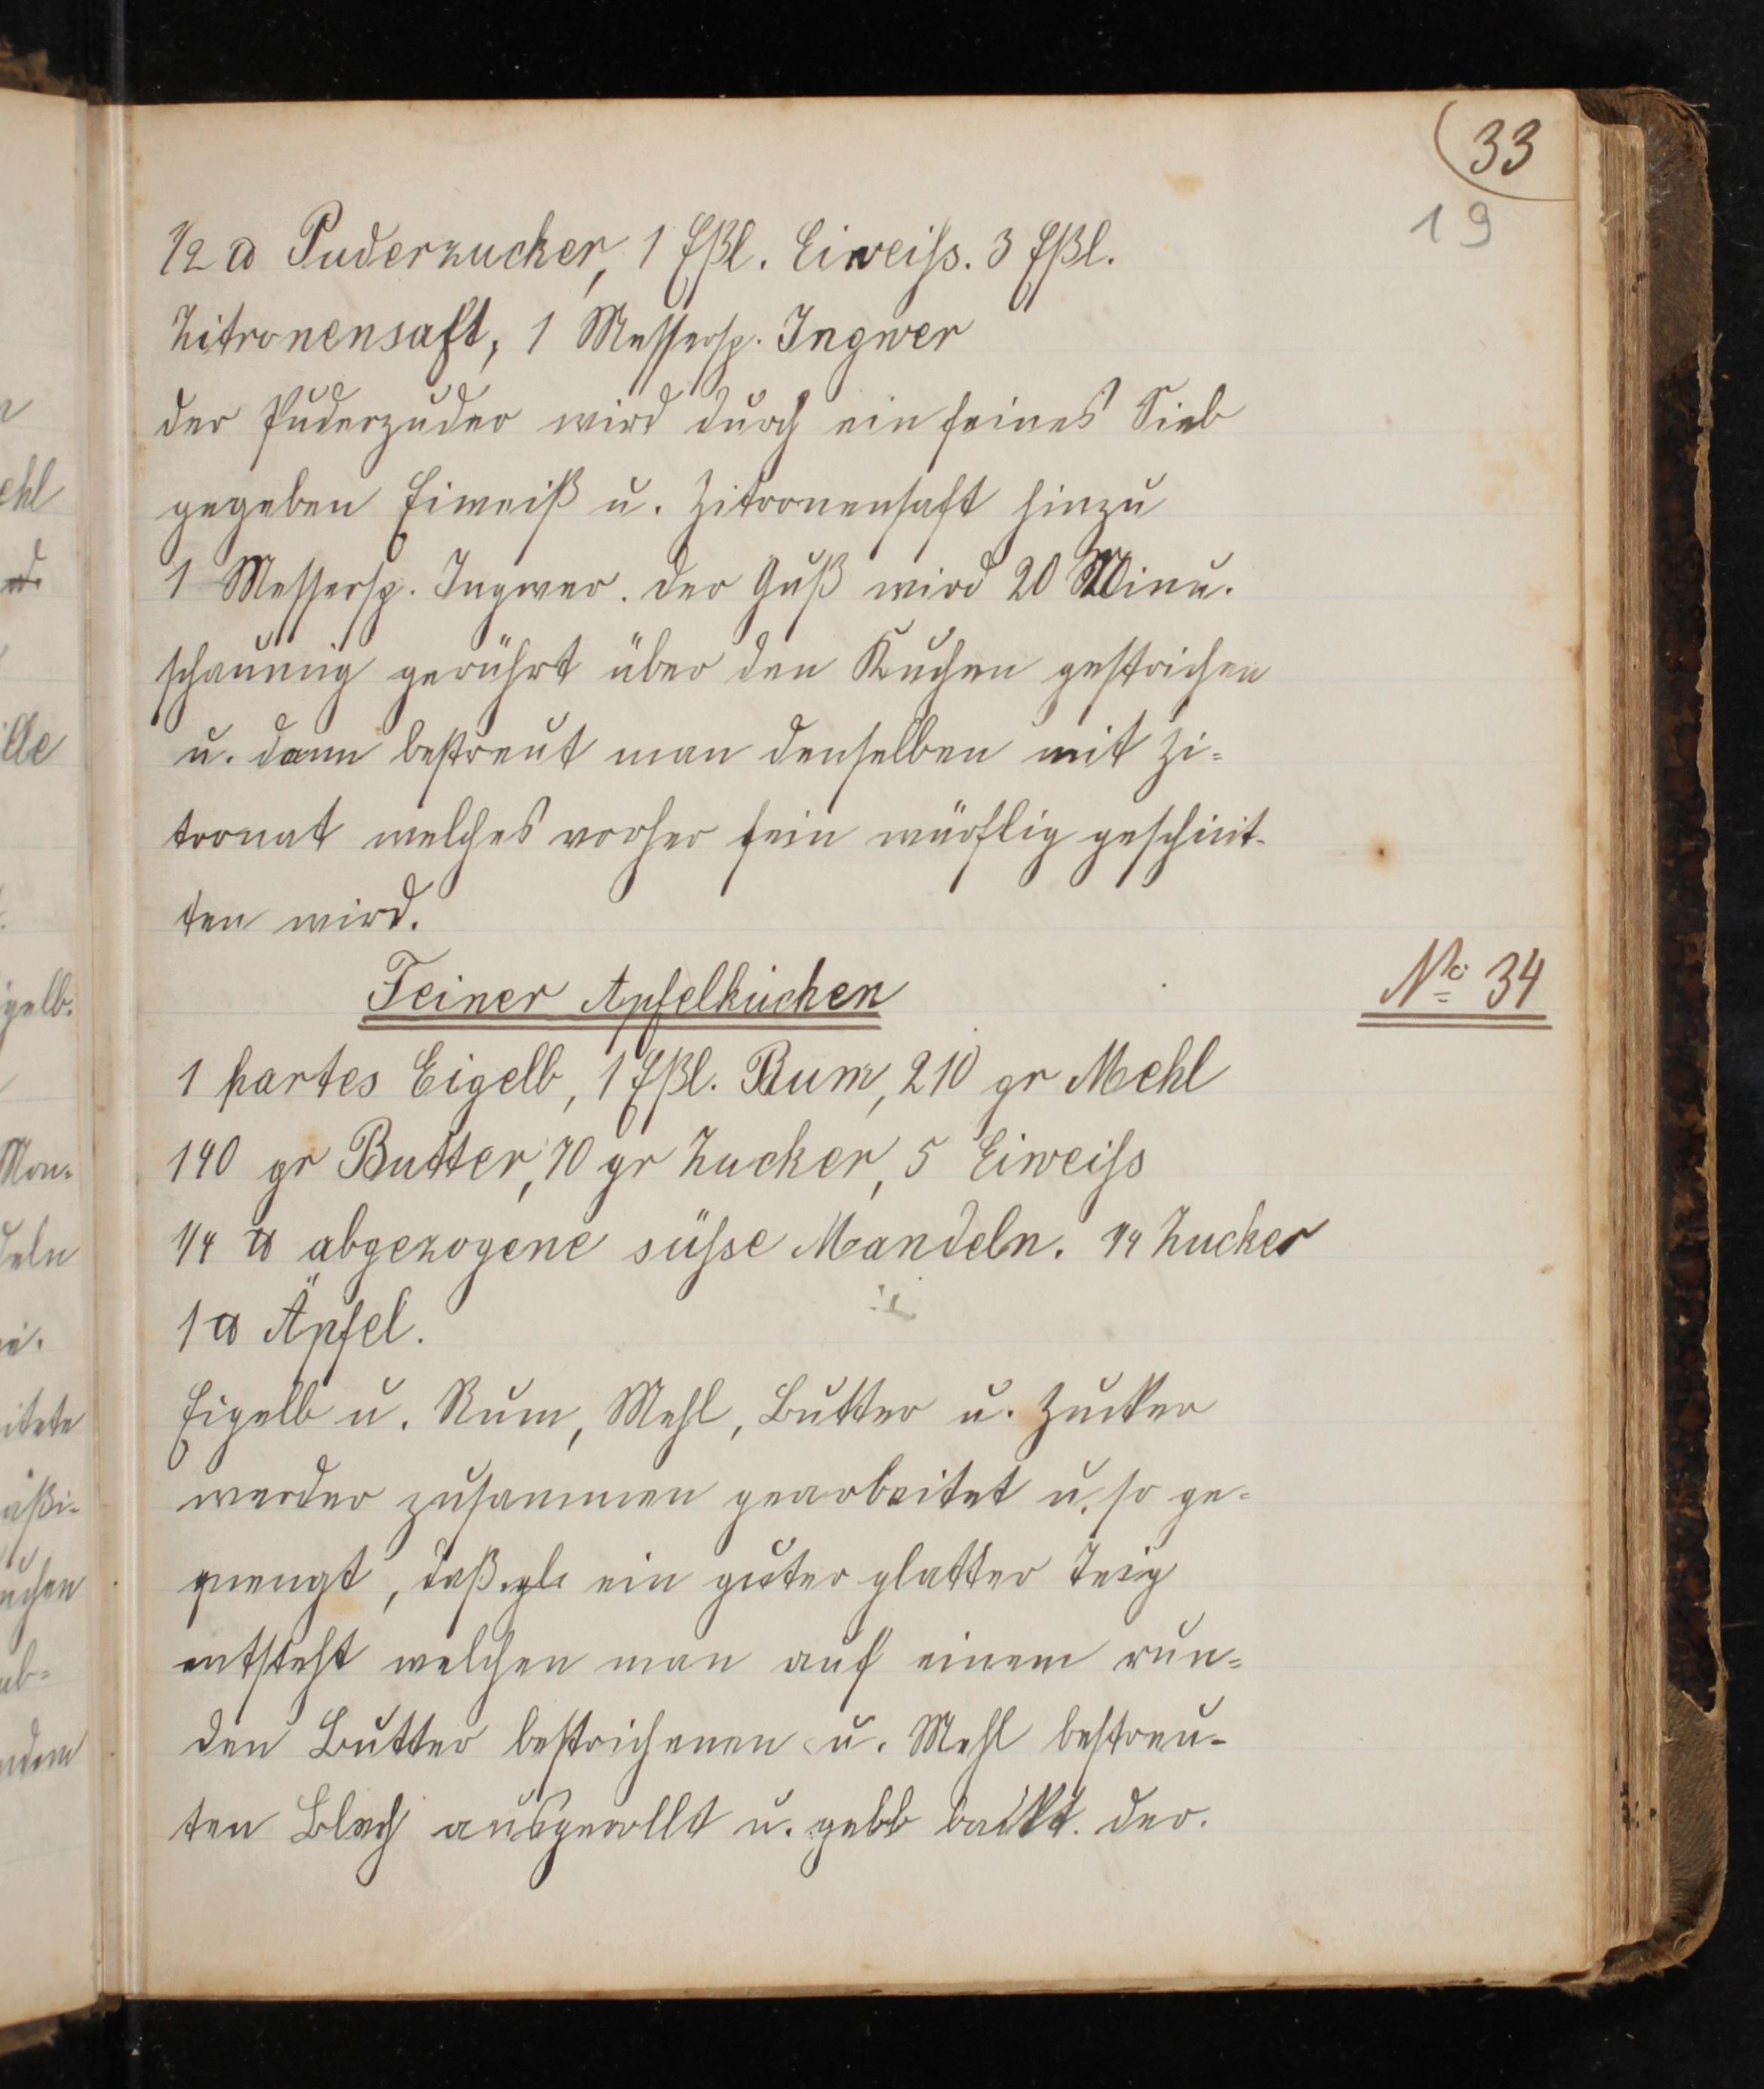 33
19
1/2 ℔ Puderzucker, 1 Eßl. Eiweiss. 3 Eßl.
Zitronensaft, 1 Messersp. Ingwer
der Puderzuder wird durch ein feines Sieb
gegeben Eiweiß u. Zitronensaft hinzu
1 Messersp. Ingwer. der Guß wird 20 Minu.
schaumig gerührt über den Kuchen gestrichen
u. dann bestreut man denselben mit Zi=
tronat welches vorher fein würflig geschnit-
ten wird.
Feiner Apfelkuchen
No 34
1 hartes Eigelb, 1 Eßl. Rum, 210 gr Mehl
140 gr Butter, 70 gr Zucker, 5 Eiweiss
1/4 ℔ abgezogene süsse Mandeln. 1/4 Zucker
1 ℔ Äpfel.
Eigelb u. Rum, Mehl, Butter u. Zucker
werder zusammen gearbeitet u. so ge-
mengt, daß ein guter glatter Teig
entsteht welchen man auf einem run=
den Butter bestrichenen u. Mehl bestreu-
ten Blech ausgerollt u. gebb backt. der.
ehl
ille
igelb.
Man=
deln
itete
äßi-
uchen
ab=